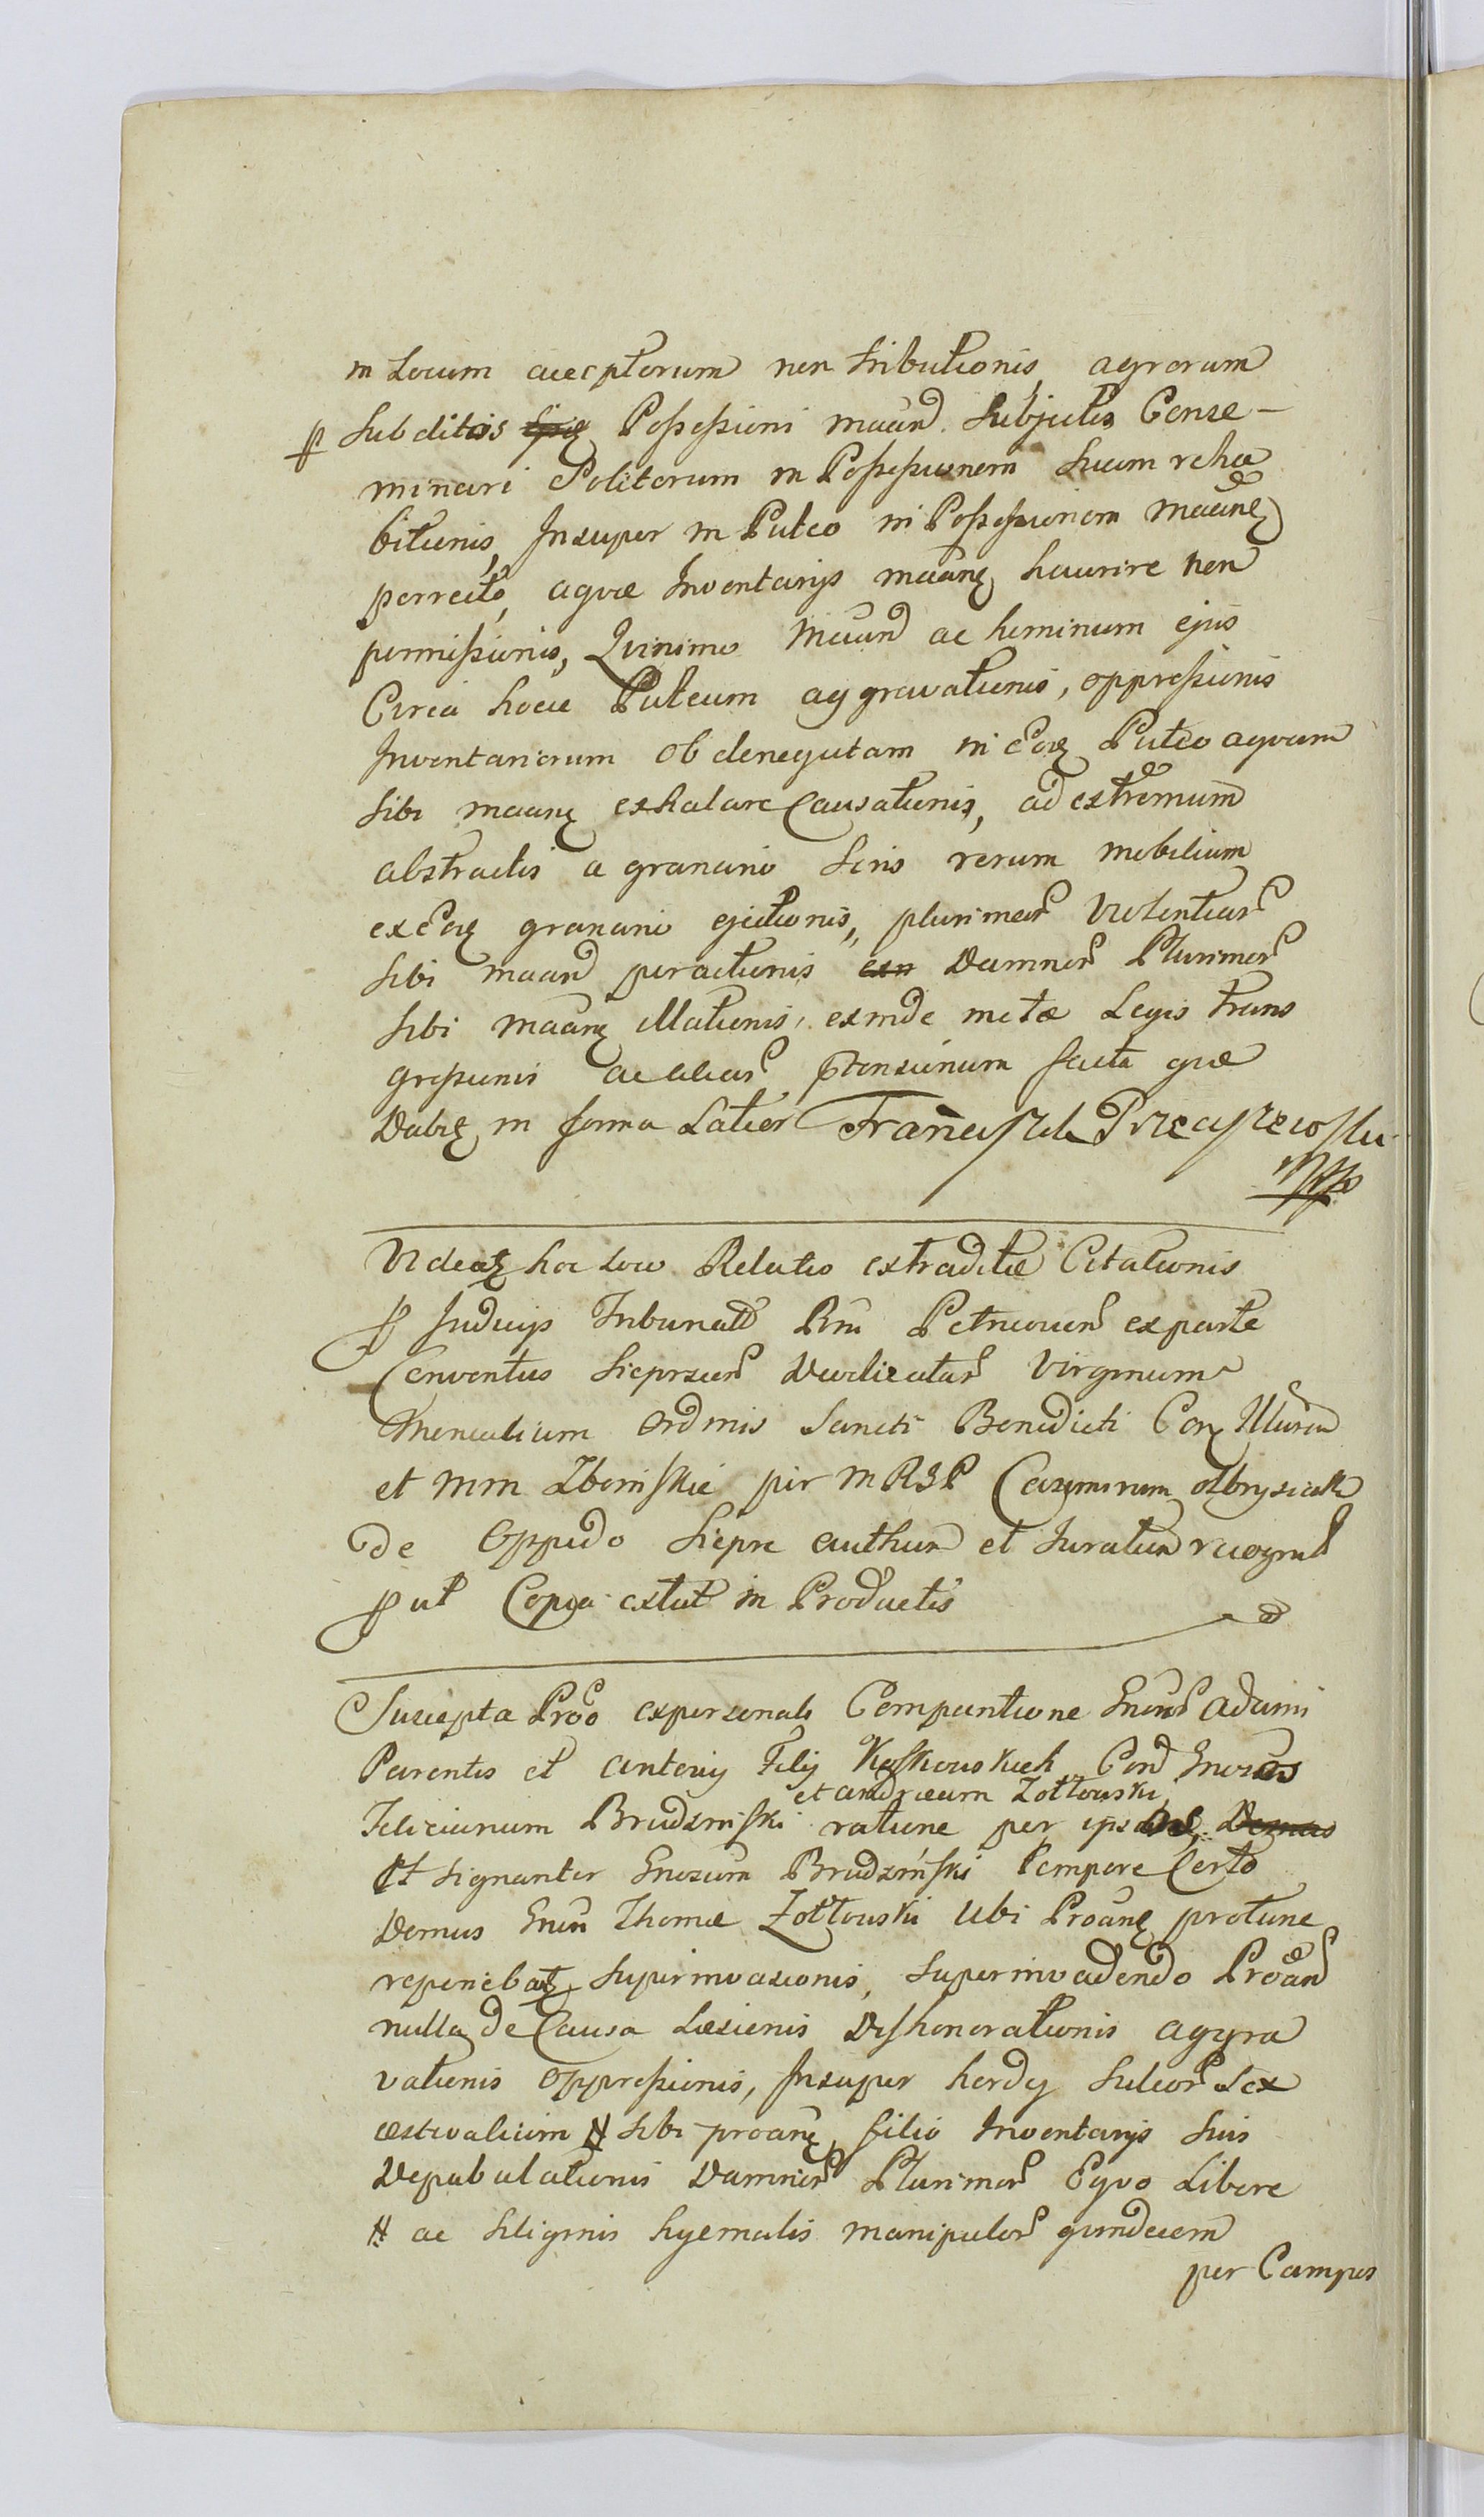 in Locum acceptorum non tributionis, agrorum
p Subditos Possessioni maand. Subjectis Conse-
minari Politorum in Possessionem Suam reha
bitionis, Insuper in Puteo in Possessionem maanę
perrecto, aquæ Inventarijs maanę haurire non
permissionis, Quinimo Maand ac hominum ejus
Circa hocce Puteum aggravationis, oppressionis
Inventariorum ob denegatam in eoę Puteo aquam
Sibi maanę exhalare Causationis, ad extremum
abstractis a granario Seris rerum mobilium
ex eoę granario ejectionis, plurimar Violentiar
Sibi maand peractionis Damnor Plurimor
Sibi maanę illationis, exinde metæ Legis trans
gressionis ac aliar ptensionum facta quæ
Dabię in forma Latior Franciszek Przeciszewski
mpp
Videatę hoc loco Relatio extraditæ Citationis
p Judicijs Tribunal Rni Petricoven ex parte
Conventus Sieprcen Devdicatar Virginum
Monialium Ordinis Sancti Benedicti Conę Illusrem
et Mm Zboinskie per M RGP Casimirum olbrysiak
de Oppido Siepre authen et Juratum recognit
put Copia extat in Productis
Suscepta Proo ex personali Comparitione Gnoser Adami
Parentis et Antonij Filij Koskowskich Cond Gnosos
et Andream Zołtowski
Felicianum Brudzinski ratione per ipsos
Et Signanter Gnosum Brudzinski tempore Certo
Domus Gnosi Thomæ Zołtowski Ubi Proanę protunc
reperiebatę Superinvasionis, Superinvadendo Proand
nulla de Causa Læsionis Dishonorationis aggra
vationis oppressionis, Insuper hordej Sulcor Sex
æstivalium # Sibi proanę filio Inventarijs Suis
Depabulationis Damnor Plurimor Equo Libere
# ac Siliginis hyemalis manipulor quindecem
per Campos